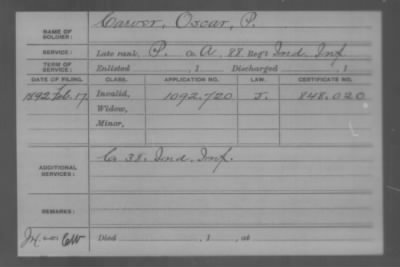 NAME OF SOLDIER: Carver, Oscar, P.
SERVICE: Late rank, P. Co. A, 88 Reg't Ind. Inf.
TERM OF SERVICE: Enlisted , 1 Discharged , 1
DATE OF FILING. CLASS. APPLICATION NO. LAW. CERTIFICATE NO.
1892 Feb. 17. Invalid, 1092.720 J. 848.020
Widow,
Minor,
ADDITIONAL SERVICES: Co 38. Ind. Inf.
REMARKS:
Died , 1 , at